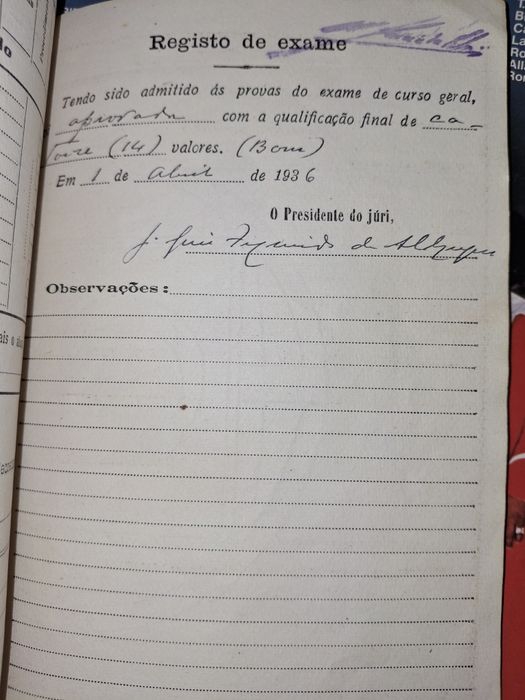 Registo de exame
Tendo sido admitido ás provas do exame de curso geral,
aprovada com a qualificação final de ca-
torze (14) valores. (Bom)
Em 1 de Abril de 1936
O Presidente do júri,
J.
de
Observações: